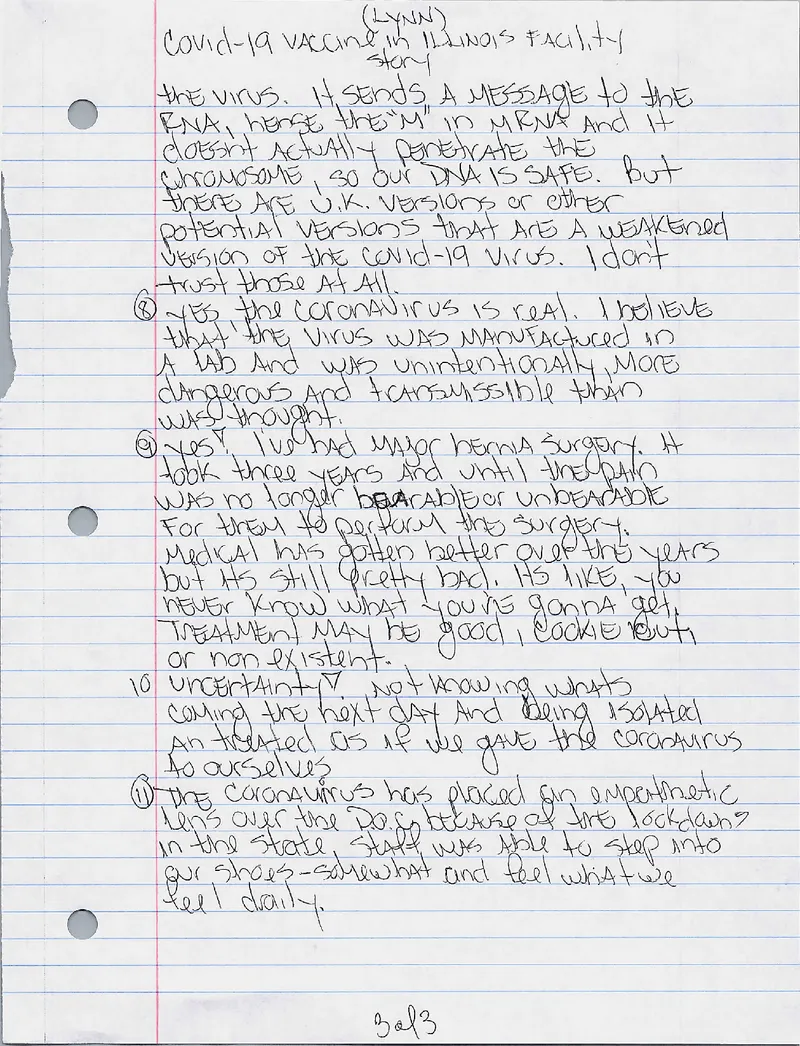 (LYNN)
Covid-19 VACCINE in ILLINOIS FACILITY
story
the virus. It sends A MESSAGE to the
RNA, hense the "M" in MRNA and it
doesnt Actually penetrate the
chromosome, so our DNA IS SAFE. But
there are U.K. versions or other
potential versions that are a weakened
version of the Covid-19 virus. I don't
trust those at all.
8 Yes, the coronavirus is real. I believe
that the virus was manufactured in
a lab and was unintentionally, more
dangerous and transmissible than
was thought.
9 Yes! I've had major hernia surgery. It
took three years and until the pain
was no longer bearable or unbearable
for them to perform the surgery.
Medical has gotten better over the years
but its still pretty bad. Its like, you
never know what you're gonna get.
Treatment may be good, cookie cut,
or non existent.
10 Uncertainty! Not knowing whats
coming the next day and being isolated
an treated as if we gave the coronavirus
to ourselves
11 The coronavirus has placed an empathetic
lens over the D.o.c. because of the lockdowns
in the state, staff was able to step into
our shoes-somewhat and feel what we
feel daily.
3 of 3